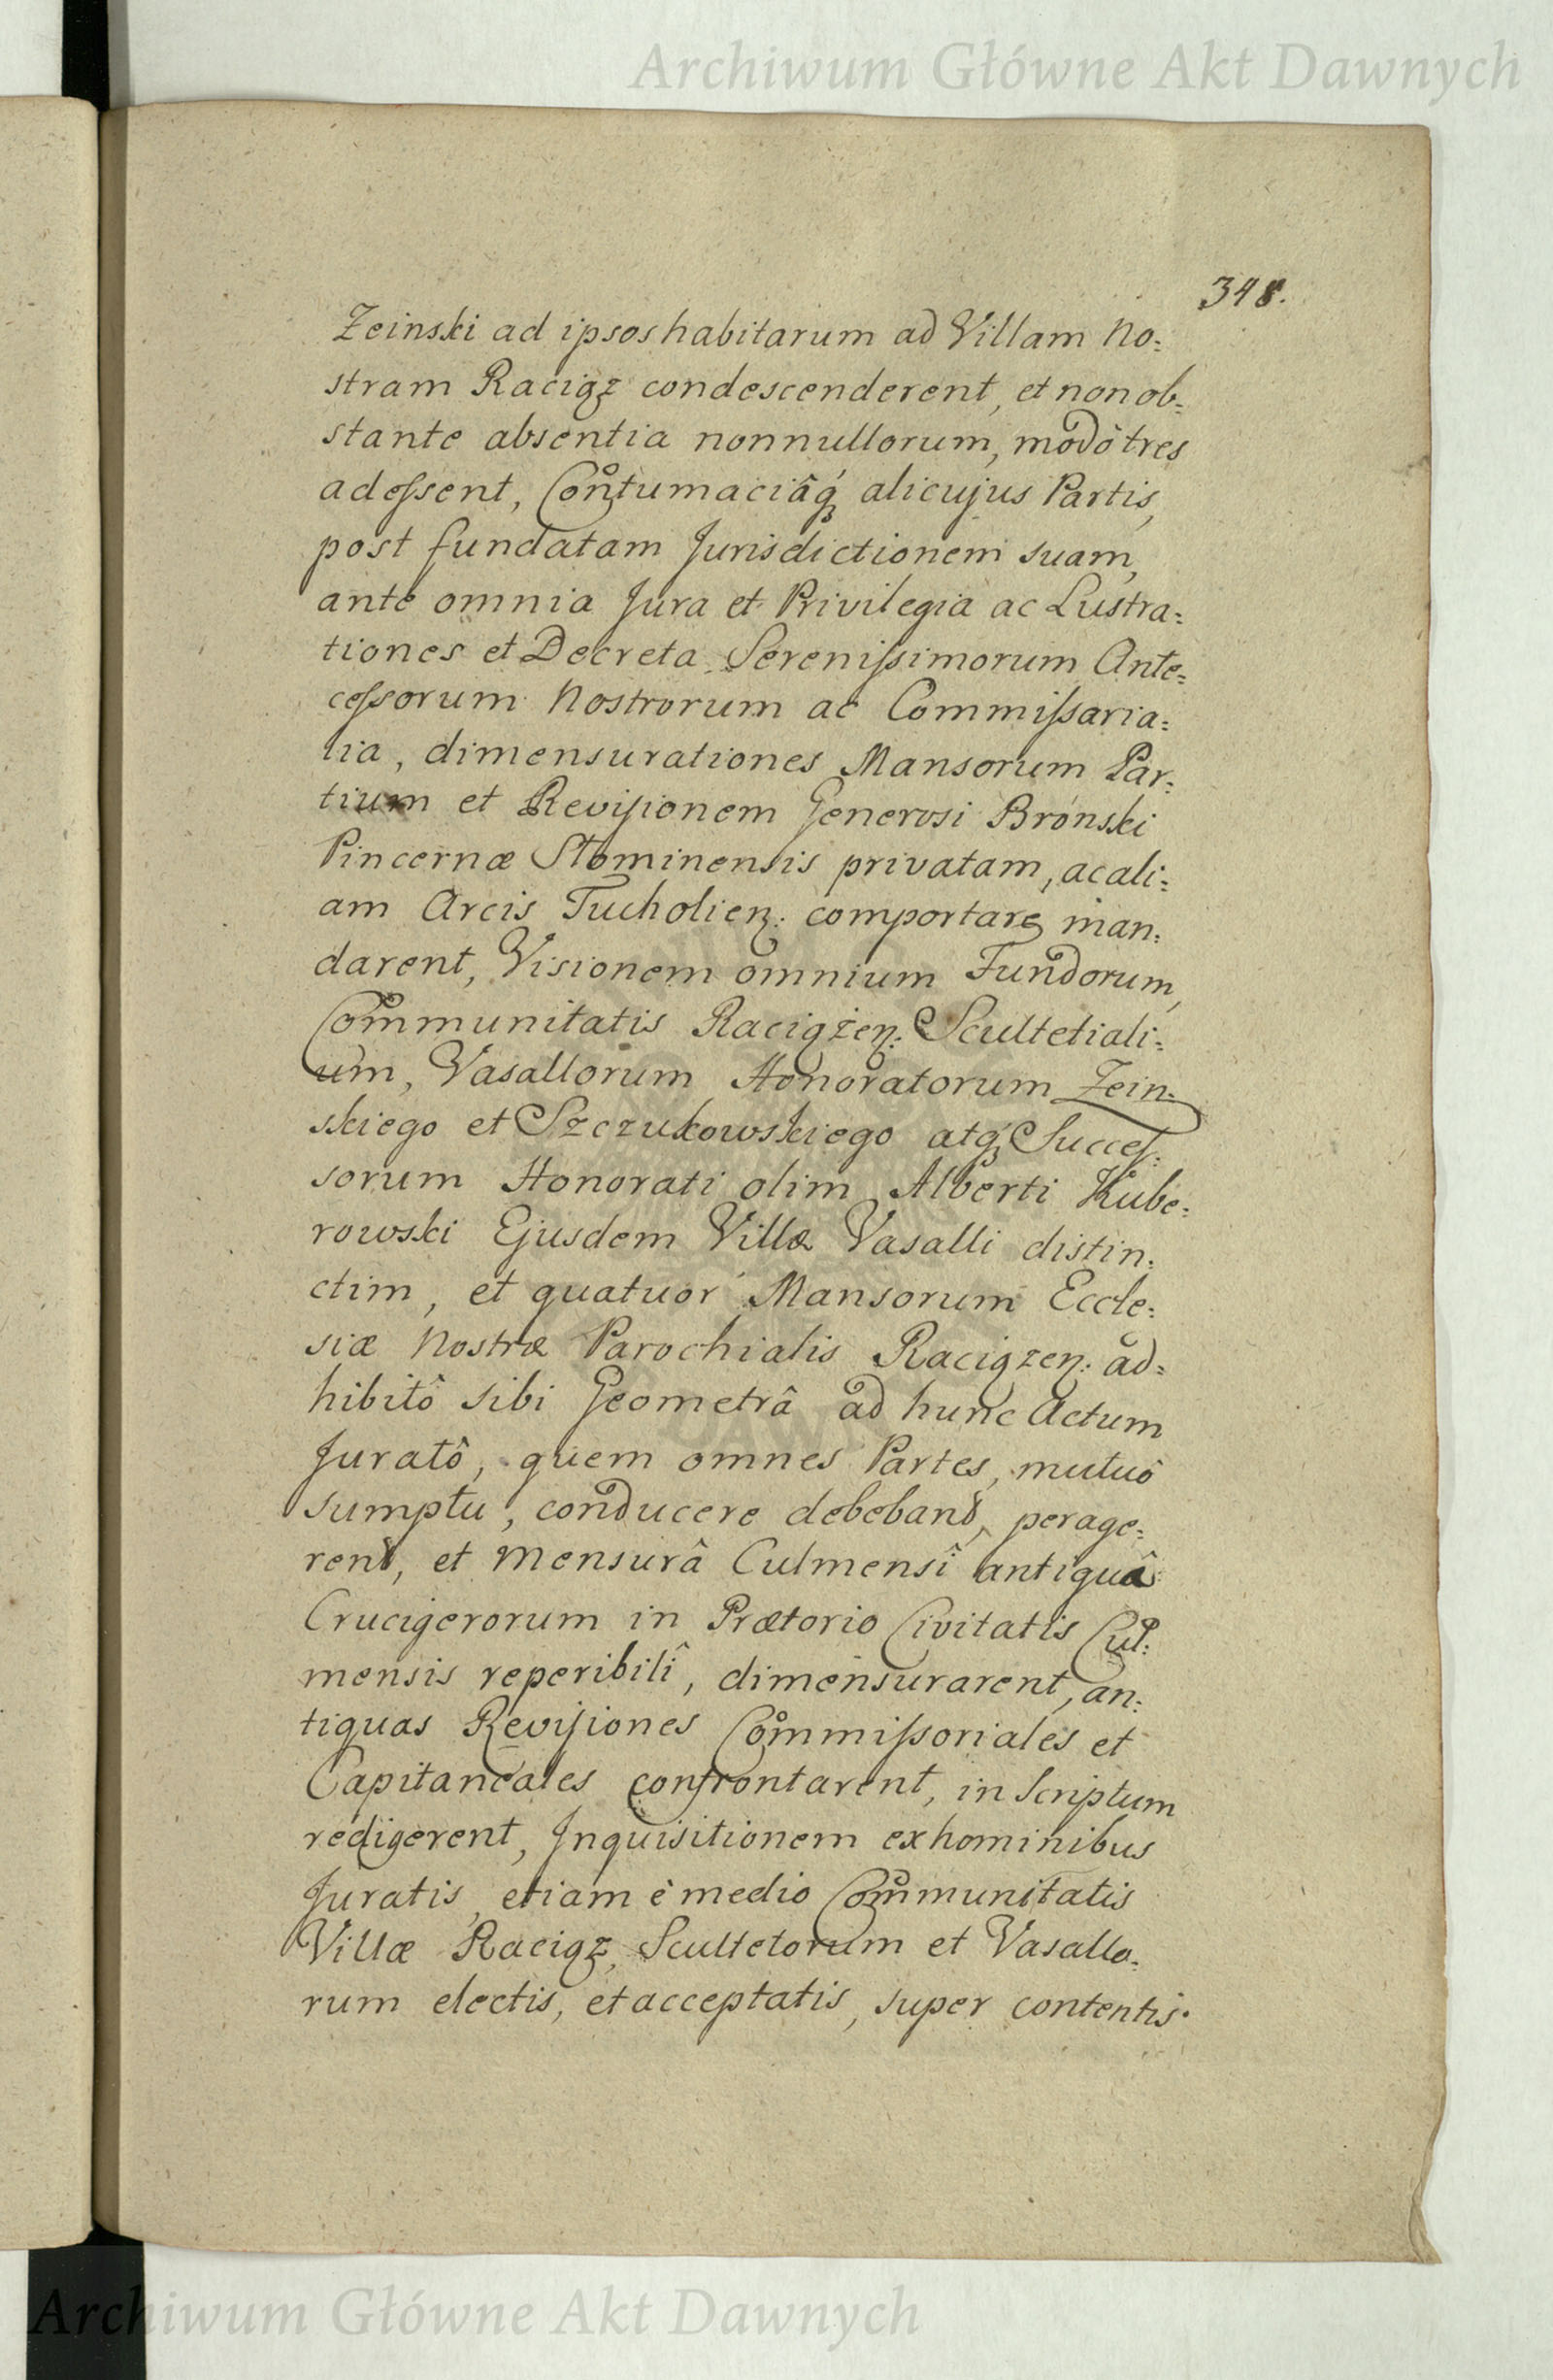 Archiwum Główne Akt Dawnych
348.
Zeinski ad ipsos habitarum ad Villam No:
stram Raciąz condescenderent, et non ob:
stante absentia nonnullorum, modò tres
adeſsent, Contumaciâq́ alicujus Partis,
post fundatam Jurisdictionem suam,
ante omnia Jura et Privilegia ac Lustra:
tiones et Decreta Sereniſsimorum Ante:
ceſsorum Nostrorum ac Commiſsaria:
lia, dimensurationes Mansorum Par:
tium et Revisionem Generosi Bronski
Pincernæ Stominensis privatam, ac ali:
am Arcis Tucholien: comportare man:
darent, Visionem omnium Fundorum,
Communitatis Raciążen: Scultetiali:
um, Vasallorum Honoratorum Zein:
skiego et Szczukowskiego atq́ Succeſ:
sorum Honorati olim Alberti Kube:
rowski Ejusdem Villæ Vasalli distin:
ctim, et quatuor Mansorum Eccle:
siæ Nostræ Parochialis Raciązen: ad:
hibitô sibi Geometrâ ad hunc Actum
Juratô, quem omnes Partes, mutuô
sumptu, conducere debebant, perage:
rent, et Mensurâ Culmensî antiquâ
Crucigerorum in Prætorio Civitatis Cul:
mensis reperibilî, dimensurarent, an:
tiquas Revisiones Commiſsoriales et
Capitaneales confrontarent, in Scriptum
redigerent, Inquisitionem ex hominibus
Juratis, etiam è medio Communitatis
Villæ Raciąz, Scultetorum et Vasallo:
rum electis, et acceptatis, super contentis
Archiwum Główne Akt Dawnych